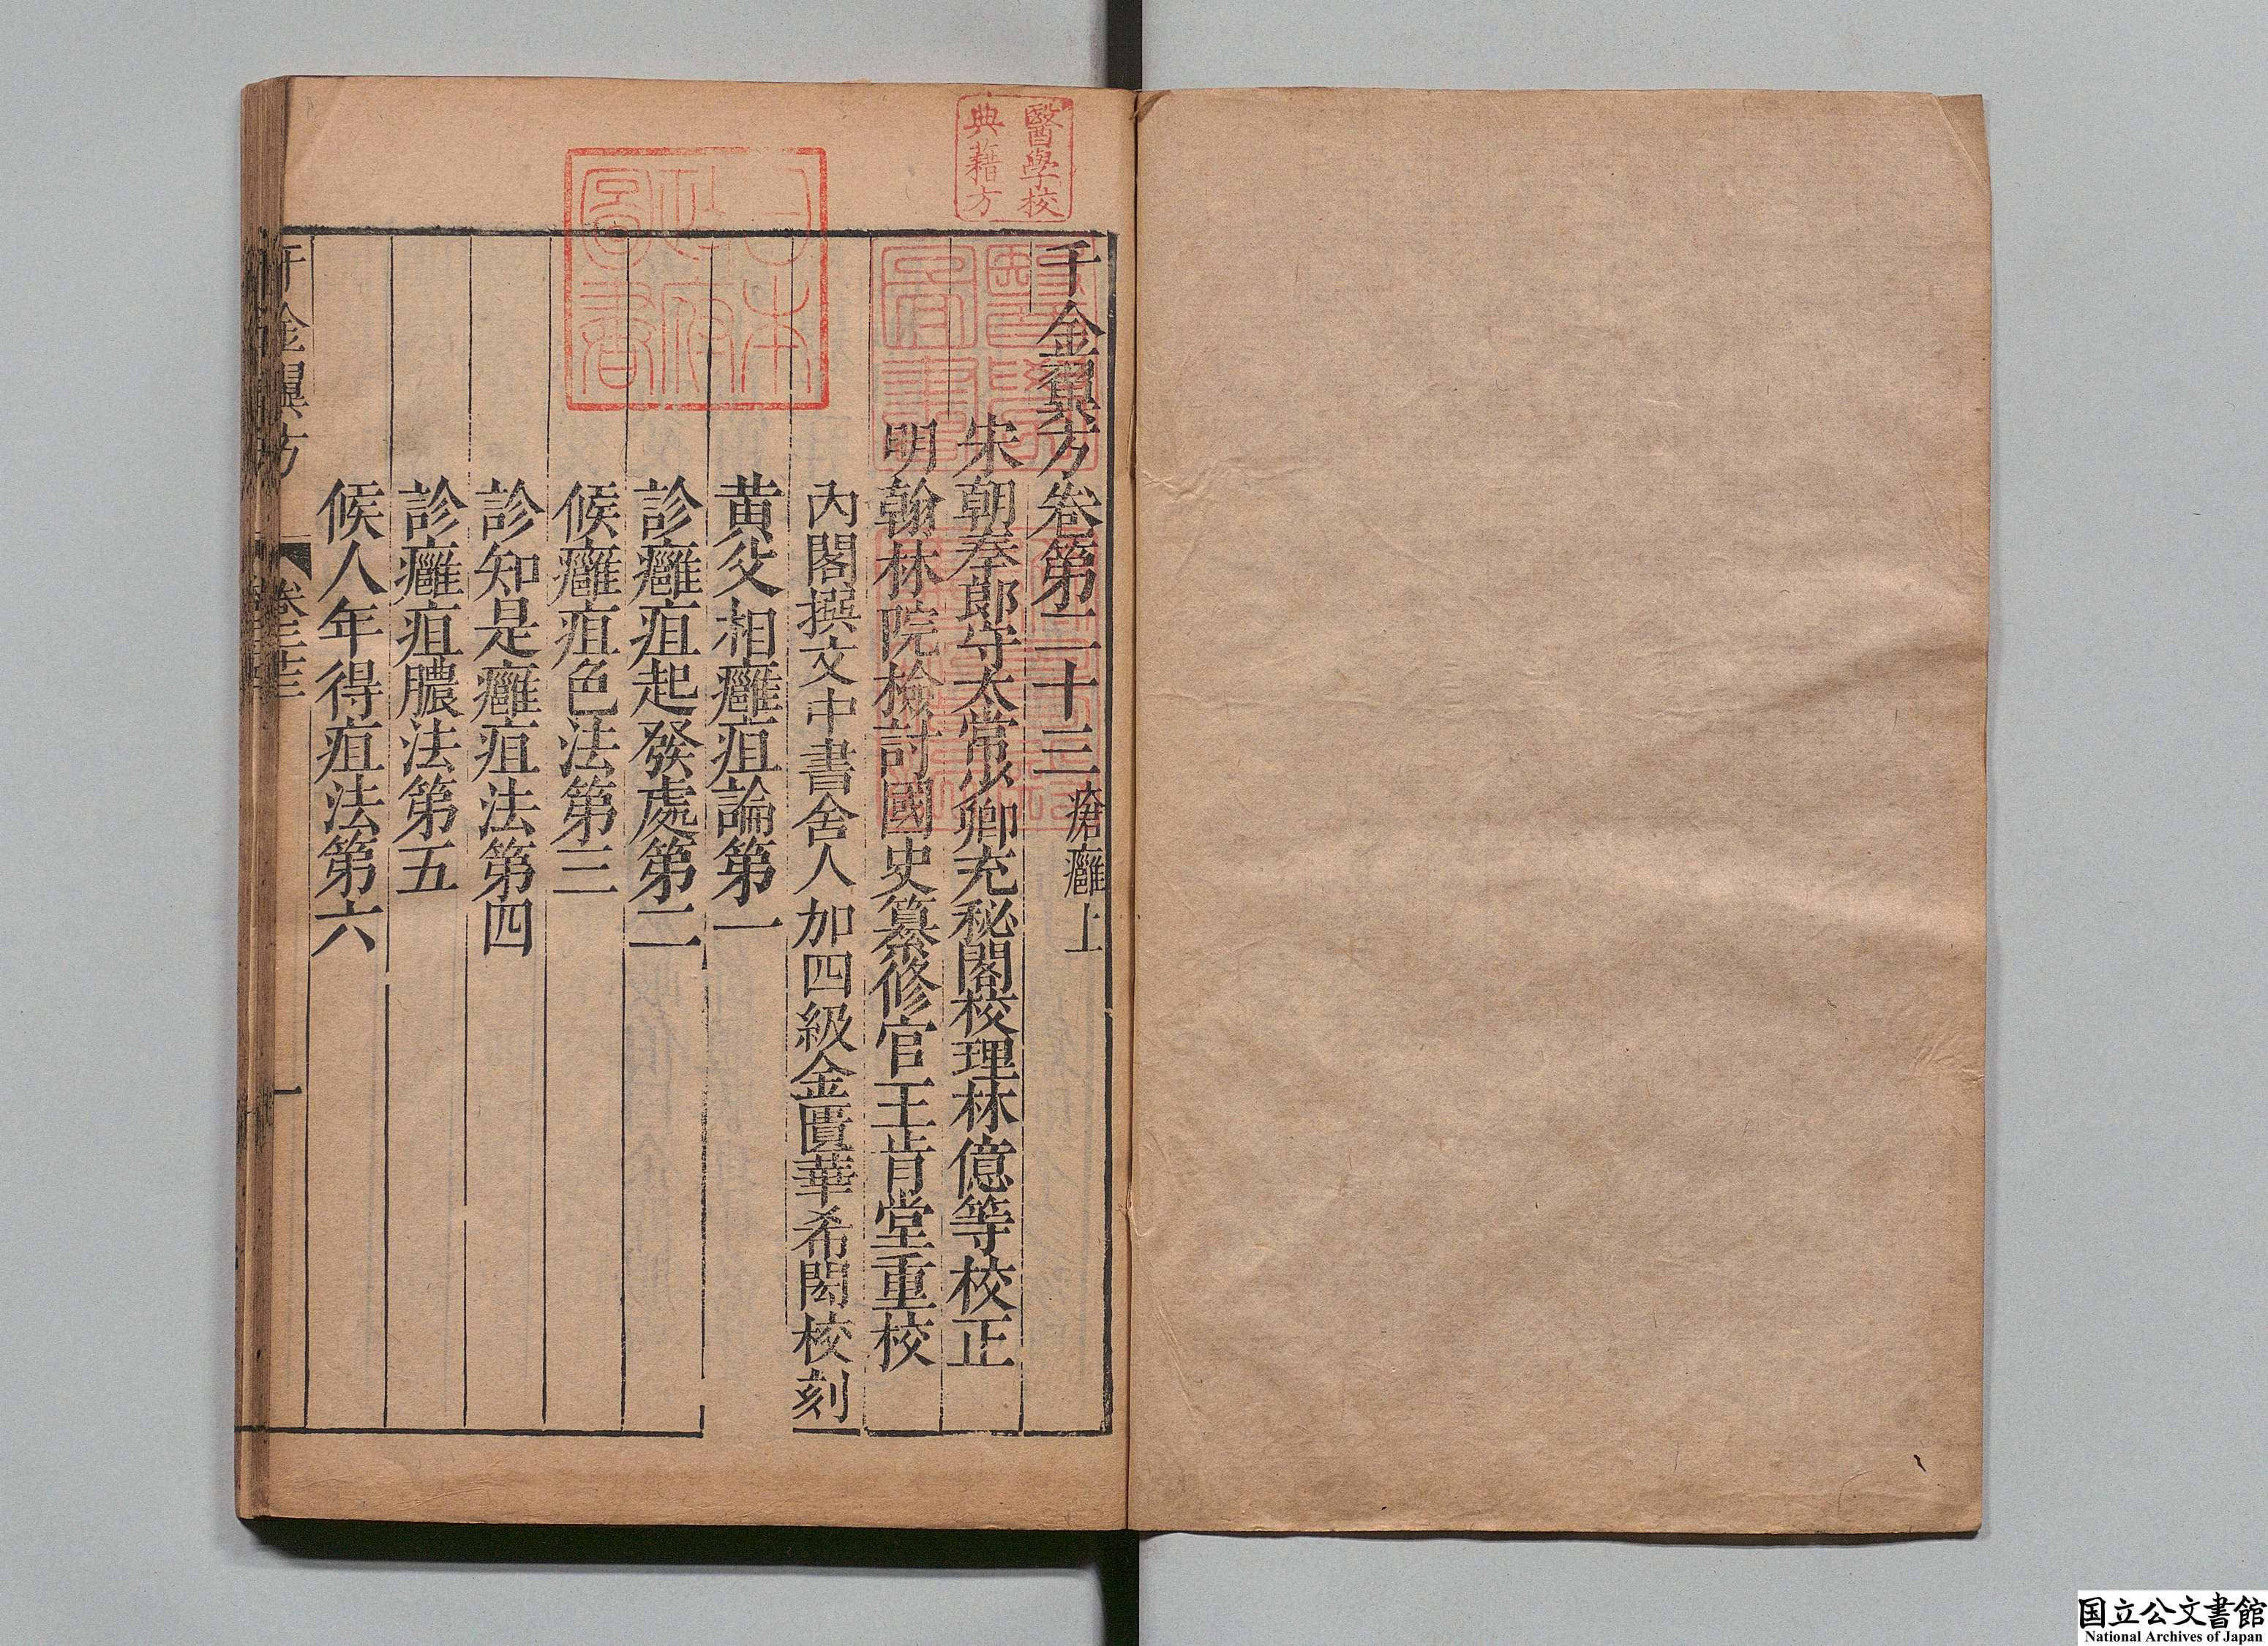 千金翼方卷第二十三 瘡癰上
宋朝奉郎守太常少卿充秘閣校理林億等校正
明翰林院檢討國史纂修官王肯堂重校
內閣撰文中書舍人加四級金匱華希閎校刻
黃父相癰疽論第一
診癰疽起發處第二
候癰疽色法第三
診知是癰疽法第四
診癰疽膿法第五
候人年得疽法第六
千金翼方 卷二十三 一
醫學校
典藉方
日本
政府
圖書
国立公文書館
National Archives of Japan